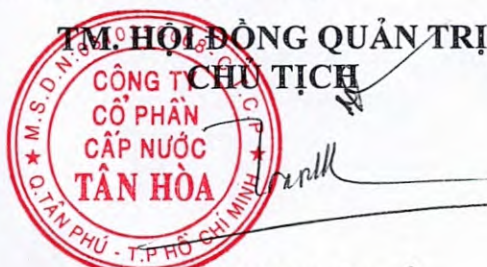 TM. HỘI ĐỒNG QUẢN TRỊ
CHỦ TỊCH
CÔNG TY
CỔ PHẦN
CẤP NƯỚC
TÂN HÒA
Q.TÂN PHÚ - T.P HỒ CHÍ MINH